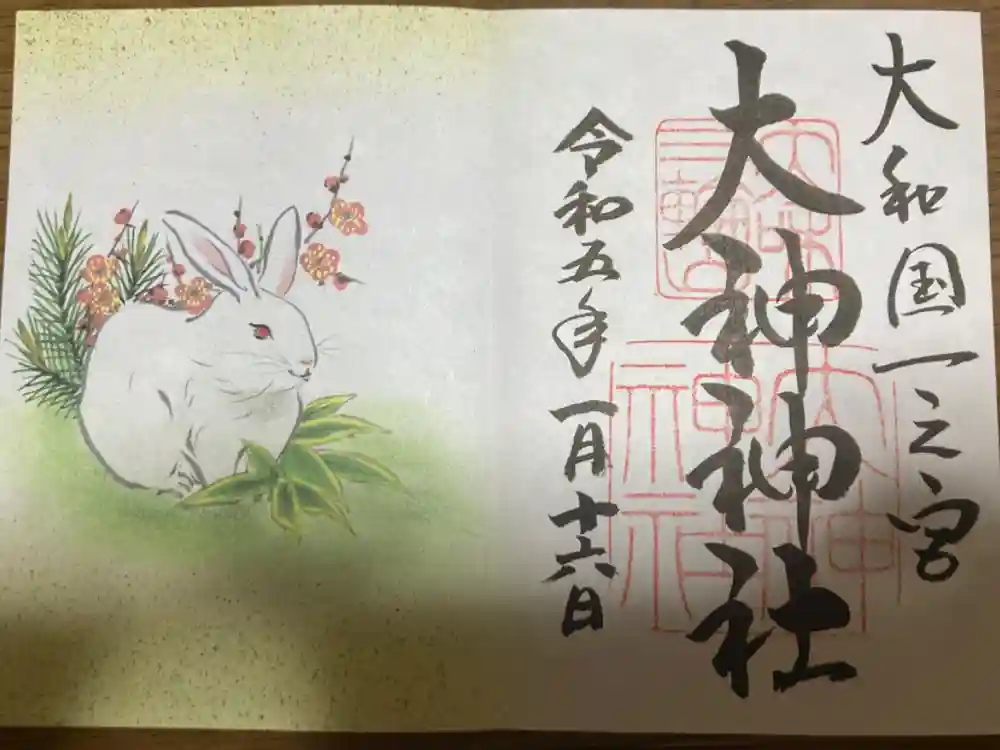 大和国一之宮
大神神社
令和五年一月十六日